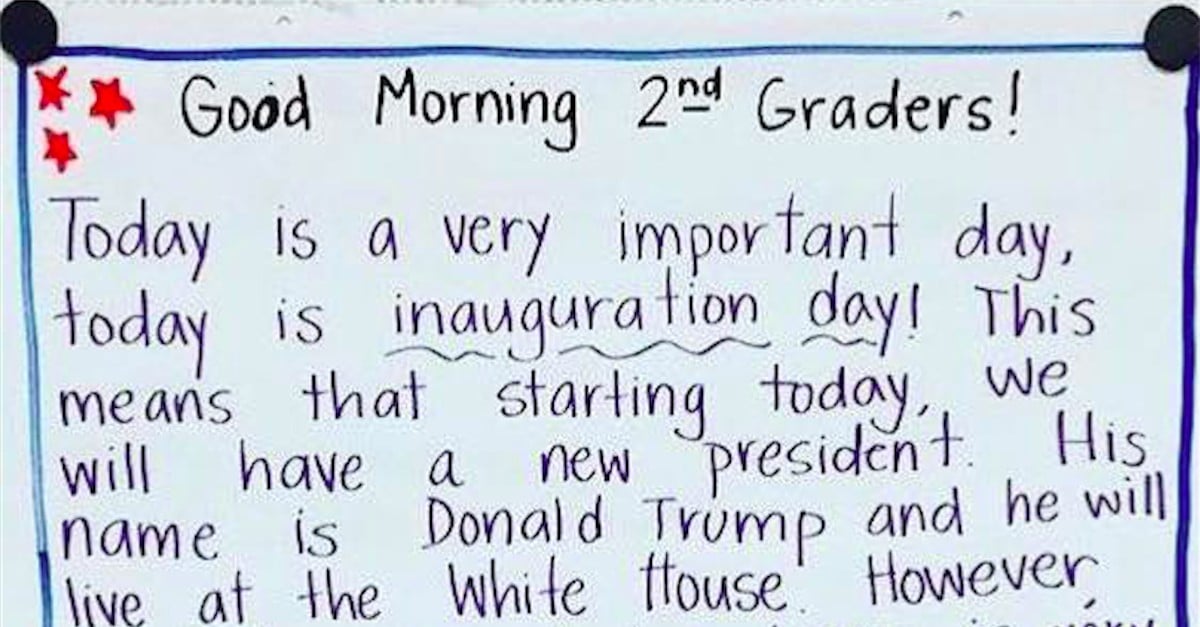 Good Morning 2nd Graders!
Today is a very important day,
today is inauguration day! This
means that starting today, we
will have a new president. His
name is Donald Trump and he will
live at the White House. However,